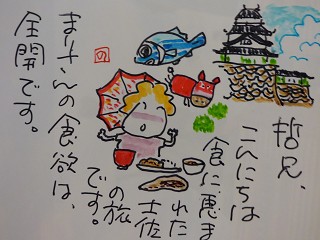 哲兄、
こんにちは
食に恵ま
れた土佐
の旅
です。
まーさんの食欲は、
全開です。
の